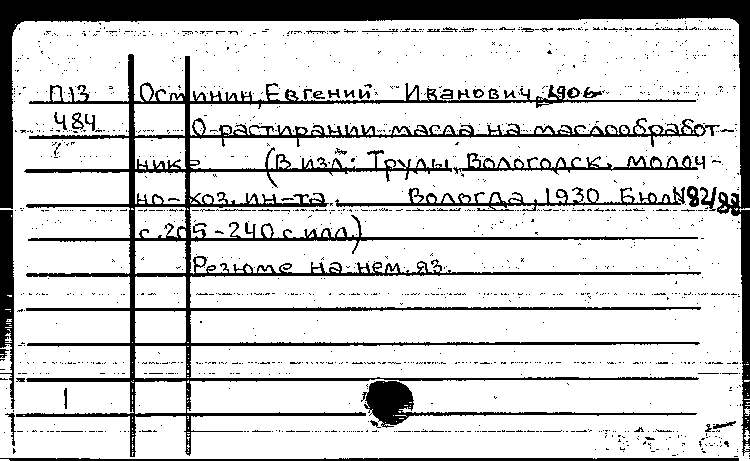 П13 Остинин, Евгений Иванович, 1906-
484 О растирании масла на маслообработ-
нике. (В изд: Труды Вологодск. молоч-
но-хоз. ин-та. Вологда, 1930 Бюл N82/83
с. 205-240 с илл.)
Резюме на нем. яз.
1